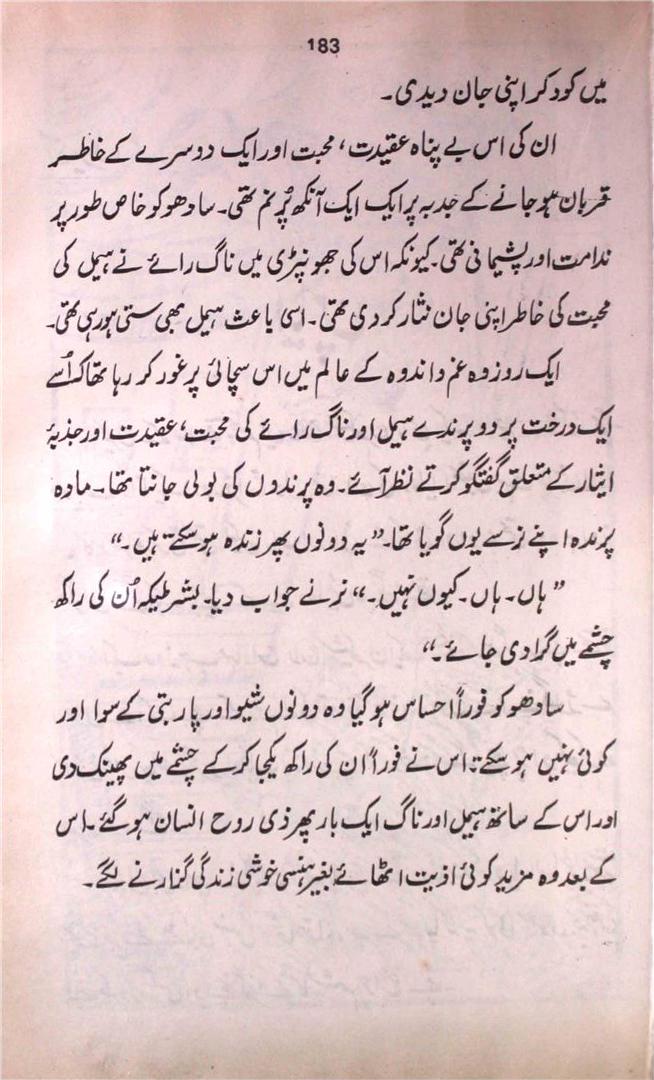 183
میں کود کر اپنی جان دیدی۔
ان کی اس بے پناہ عقیدت، محبت اور ایک دوسرے کے خاطر
قربان ہو جانے کے جذبہ پر ایک ایک آنکھ پُرنم تھی۔ سادھو کو خاص طور پر
ندامت اور پشیمانی تھی۔ کیونکہ اس کی جھونپڑی میں ناگ رائے نے ہیمل کی
محبت کی خاطر اپنی جان نثار کر دی تھی۔ اسی باعث ہیمل بھی ستی ہو رہی تھی۔
ایک روز وہ غم و اندوہ کے عالم میں اس سچائی پر غور کر رہا تھا کہ اُسے
ایک درخت پر دو پرندے ہیمل اور ناگ رائے کی محبت، عقیدت اور جذبۂ
ایثار کے متعلق گفتگو کرتے نظر آئے۔ وہ پرندوں کی بولی جانتا تھا۔ مادہ
پرندہ اپنے نر سے یوں گویا تھا۔ ”یہ دونوں پھر زندہ ہو سکتے ہیں۔“
”ہاں۔ ہاں۔ کیوں نہیں۔“ نر نے جواب دیا۔ بشرطیکہ اُن کی راکھ
چشمے میں گرا دی جائے۔“
سادھو کو فوراً احساس ہو گیا وہ دونوں شیو اور پاربتی کے سوا اور
کوئی نہیں ہو سکتے۔ اس نے فوراً ان کی راکھ یکجا کر کے چشمے میں پھینک دی
اور اس کے ساتھ ہیمل اور ناگ ایک بار پھر ذی روح انسان ہو گئے۔ اس
کے بعد وہ مزید کوئی اذیت اٹھائے بغیر ہنسی خوشی زندگی گزارنے لگے۔